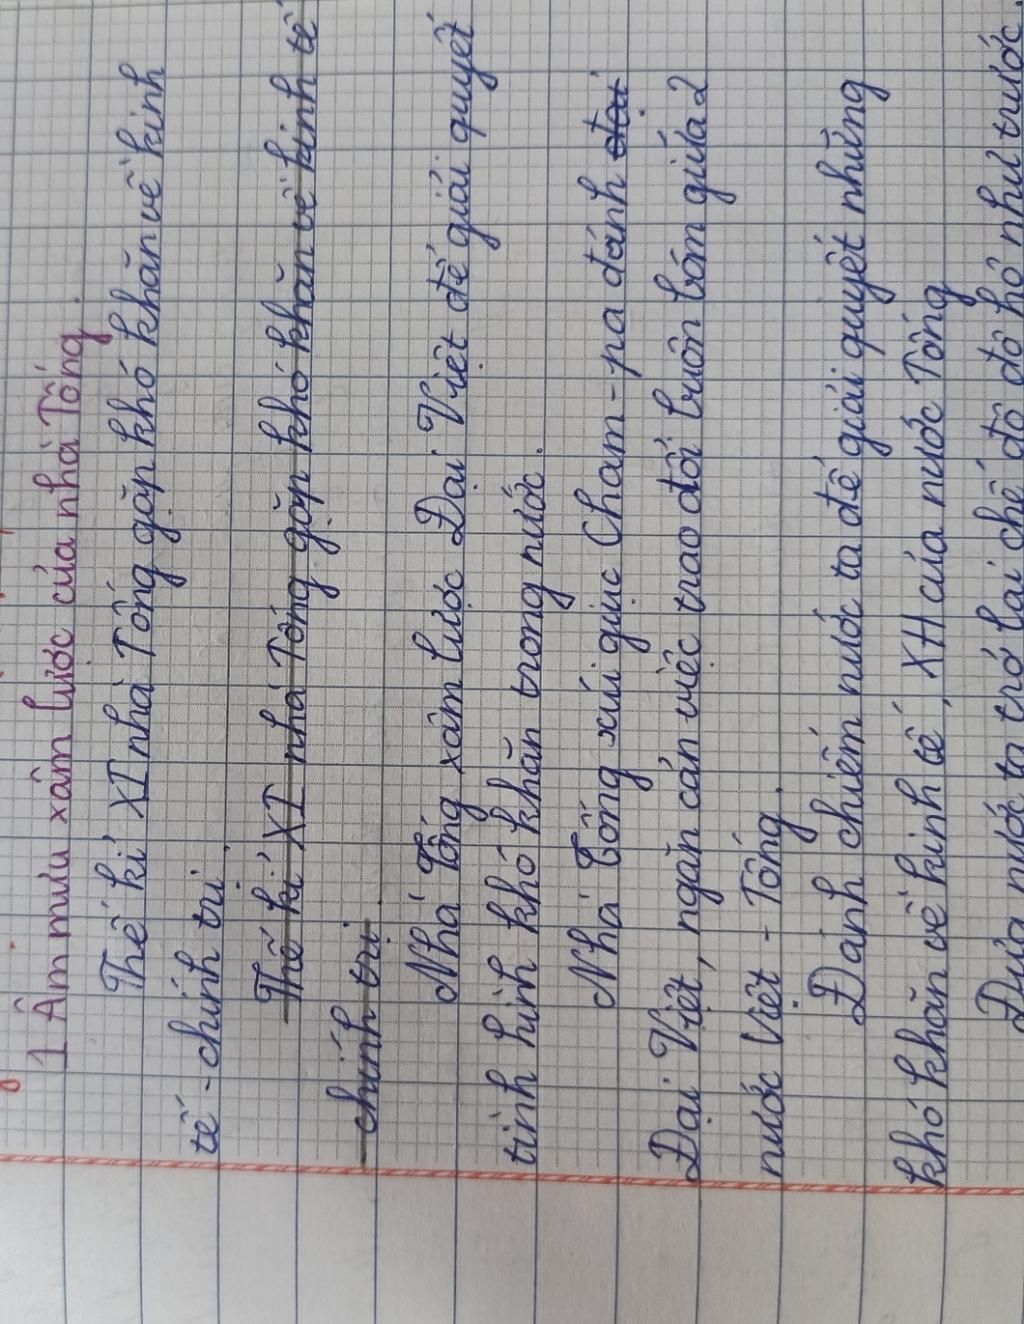 1 Âm mưu xâm lược của nhà Tống.
Thế kỉ XI nhà Tống gặp khó khăn về kinh
tế - chính trị.
Thế kỉ XI nhà Tống gặp khó khăn về kinh tế
- chính trị.
Nhà Tống xâm lược Đại Việt để giải quyết
tình hình khó khăn trong nước.
Nhà Tống xúi giục Cham-pa đánh đại
Đại Việt, ngăn cản việc trao đổi buôn bán giữa 2
nước Việt - Tống.
Đánh chiếm nước ta để giải quyết những
khó khăn về kinh tế, XH của nước Tống
Đưa nước ta trở lại chế độ đô hộ như trước.